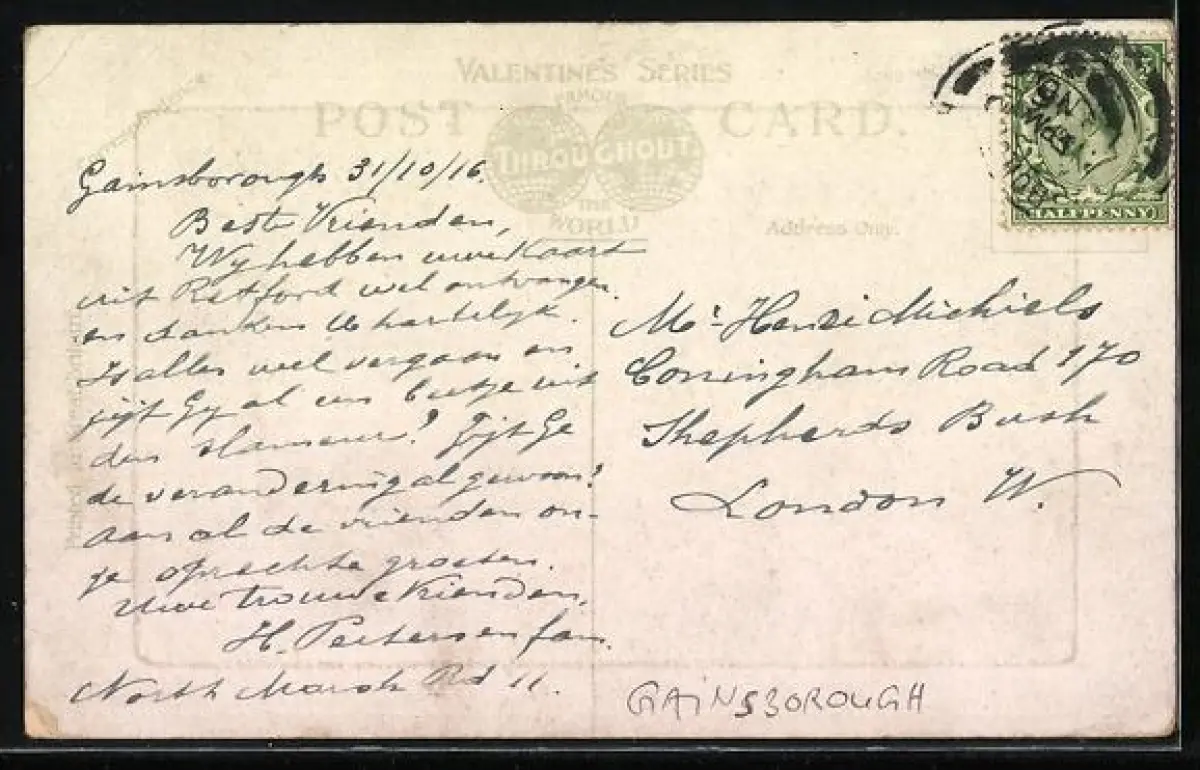 VALENTINE'S SERIES
POST CARD.
FAMOUS
THROUGHOUT
THE
WORLD
Address Only.
HALFPENNY
Gainsborough 31/10/16.
Beste Vrienden,
Wy hebben uwe Kaart
uit Retford wel ontvangen
en danken U hartelijk.
Is alles wel vergaan en
zijt Gy al een beetje uit
den
? Zijt Ge
de verandering al gewoon?
Aan al de vrienden on-
ze oprechte groeten.
Uwe trouwe Vrienden.
H. Peetersen fam.
North Marsh Rd 11.
Mr. Henri Michiels
Conningham Road 170
Shepherds Bush
London W.
GAINSBOROUGH